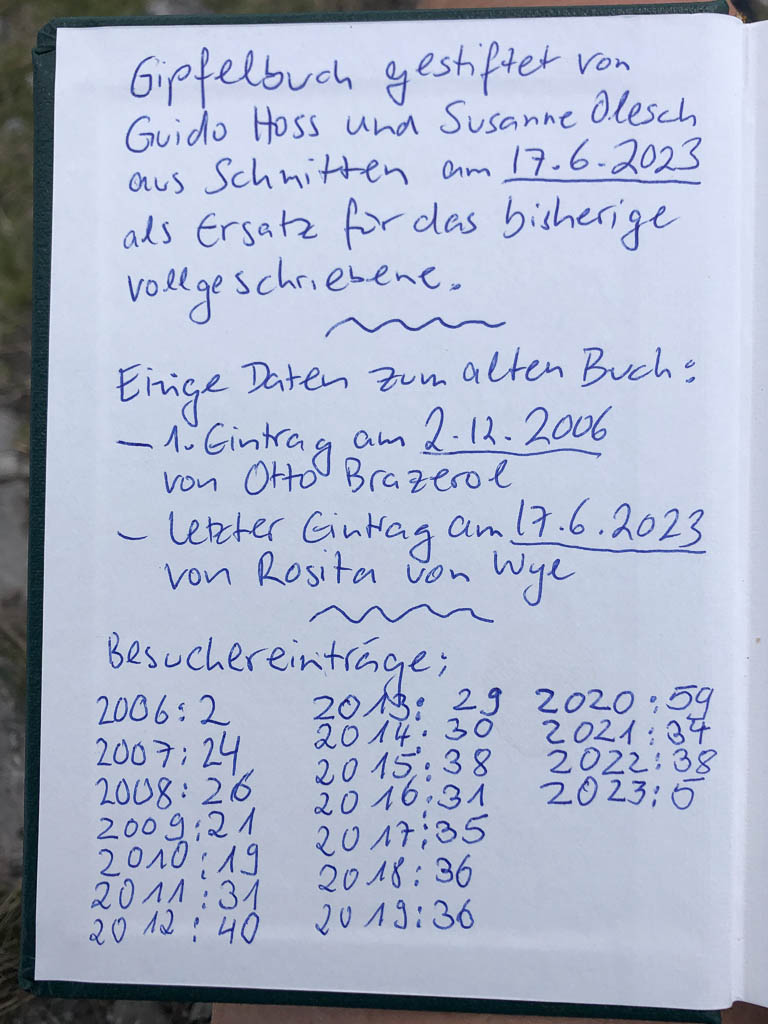 Gipfelbuch gestiftet von
Guido Hoss und Susanne Olesch
aus Schmitten am 17.6.2023
als Ersatz für das bisherige
vollgeschriebene.
Einige Daten zum alten Buch:
– 1. Eintrag am 2.12.2006
von Otto Brazerol
– letzter Eintrag am 17.6.2023
von Rosita von Wyl
Besuchereinträge:
2006: 2
2007: 24
2008: 26
2009: 21
2010: 19
2011: 31
2012: 40
2013: 29
2014: 30
2015: 38
2016: 31
2017: 35
2018: 36
2019: 36
2020: 59
2021: 34
2022: 38
2023: 5